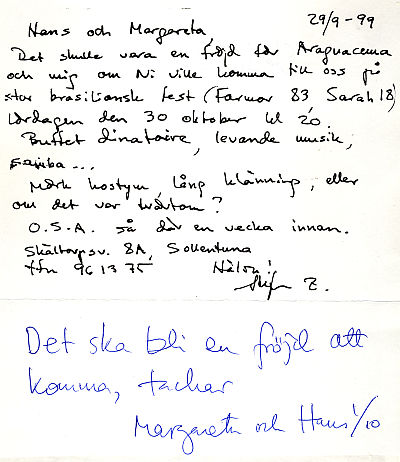 29/9-99
Hans och Margareta,
Det skulle vara en fröjd för Araguacema
och mig om Ni ville komma till oss på
stor brasiliansk fest (Farmor 83, Sarah 18)
lördagen den 30 oktober kl 20.
Buffet dinatoire, levande musik,
samba...
Mörk kostym, lång klänning, eller
om det var tvärtom?
O.S.A. så där en vecka innan.
Skältorpsv. 8A, Sollentuna
tfn 961375 Hälsn!
Z.
Det ska bli en fröjd att
komma, tackar
Margareta och Hans 1/10